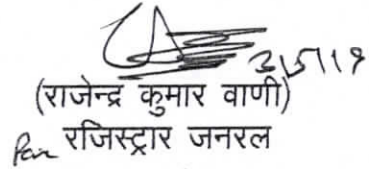 3/5/19
(राजेन्द्र कुमार वाणी)
रजिस्ट्रार जनरल